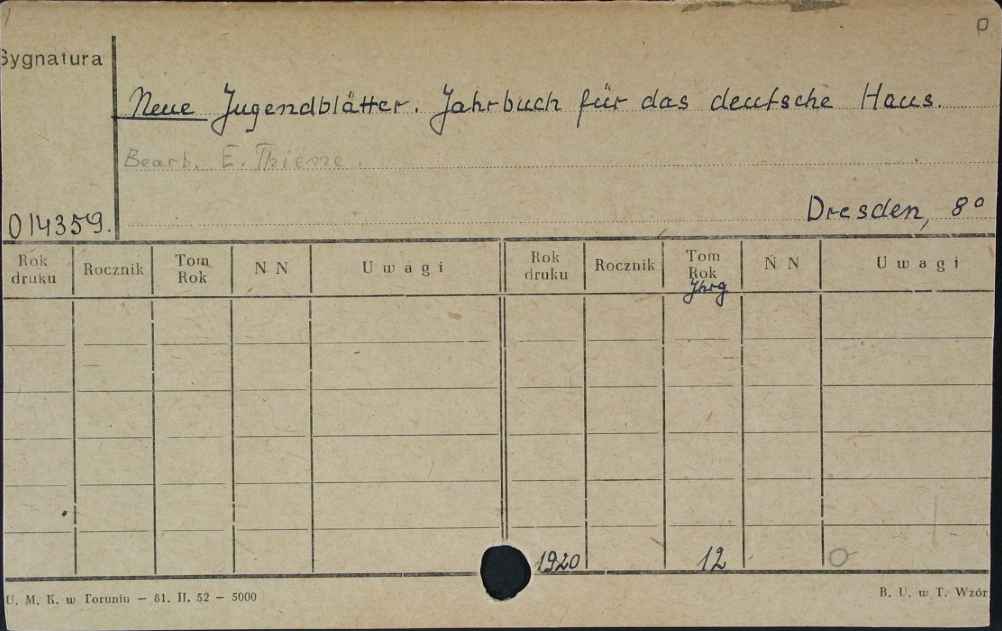 O
Sygnatura
Neue Jugendblätter. Jahrbuch für das deutsche Haus.
Bearb. E. Thieme.
014359.
Dresden, 8°
Rok druku Rocznik Tom Rok N N Uwagi Rok druku Rocznik Tom Rok N N Uwagi
Jhrg
1920 12 O
U. M. K. w Toruniu — 81. II. 52 — 5000
B. U. w T. Wzór